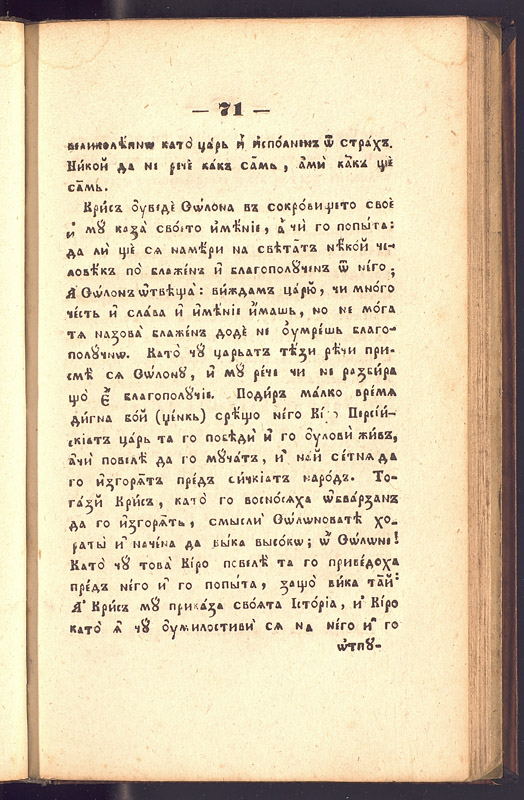 — 71 —
великолѣпнѡ като царь и҆ и҆спо́лненъ ѿ стра́хъ.
Ни́кой да не речѐ ка́къ са́мь, а҆мѝ ка́къ ще
са́мь.
Кри́съ ѹ҆ведѐ Ѳѡ́лона въ сокро́вището своѐ
и҆ мꙋ̀ каза̀ сво́ето и҆мѣ́нїе, а҆̀ чѝ го попы́та:
да лѝ ще сѧ намѣ́ри на свѣта́тъ нѣ́кой че-
ловѣ́къ по̀ блаже́нъ и҆ благополꙋ́ченъ ѿ не́го;
А҆̀ Ѳѡ́лонъ ѿвѣща̀: ви́ждамъ царю̀, чи мно́го
че́сть и҆ сла́ва и҆ и҆мѣ́нїе и҆́машь, но не мо́га
тѧ назова̀ блаже́нъ додѐ не ѹ҆мре́шь благо-
полꙋ́чнѡ. Като̀ чꙋ̀ ца́рьатъ тѣ́зи рѣ́чи при-
смѣ̀ сѧ Ѳѡ́лонꙋ, и҆ мꙋ̀ речѐ чи не разби́ра
що̀ є҆̀ благополꙋ́чїе. Поди́ръ ма́лко вре́мѧ
ди́гна бо́й (џе́нкь) срѣ́що не́го Кі́ро Персі́й-
скїатъ ца́рь та го победѝ и҆ го ѹ҆ловѝ жи́въ,
а҆̀чи повелѣ̀ да го мꙋ́чатъ, и҆ на́й се́тнѧ да
го и҆згорѧ́тъ пре́дъ си́чкїатъ наро́дъ. То-
га́зи Кри́съ, като̀ го восно́сѧха ѡ҆бва́рзанъ
да го и҆згорѧ́тъ, смы́сли Ѳѡ́лѡноватѣ хо-
раты̀ и҆ наче́на да вы́ка высо́кѡ; ѽ Ѳѡ́лѡне!
Като̀ чꙋ̀ това̀ Кі́ро повелѣ̀ та го приве́доха
пре́дъ не́го и҆ го попы́та, защо̀ ви́ка та́й:
А҆̀ Кри́съ мꙋ̀ прика́за сво́ѧта І҆сто́рїа, и҆ Кі́ро
като̀ ѧ҆̀ чꙋ̀ ѹ҆милостивѝ сѧ на не́го и҆ го
ѿпꙋ-